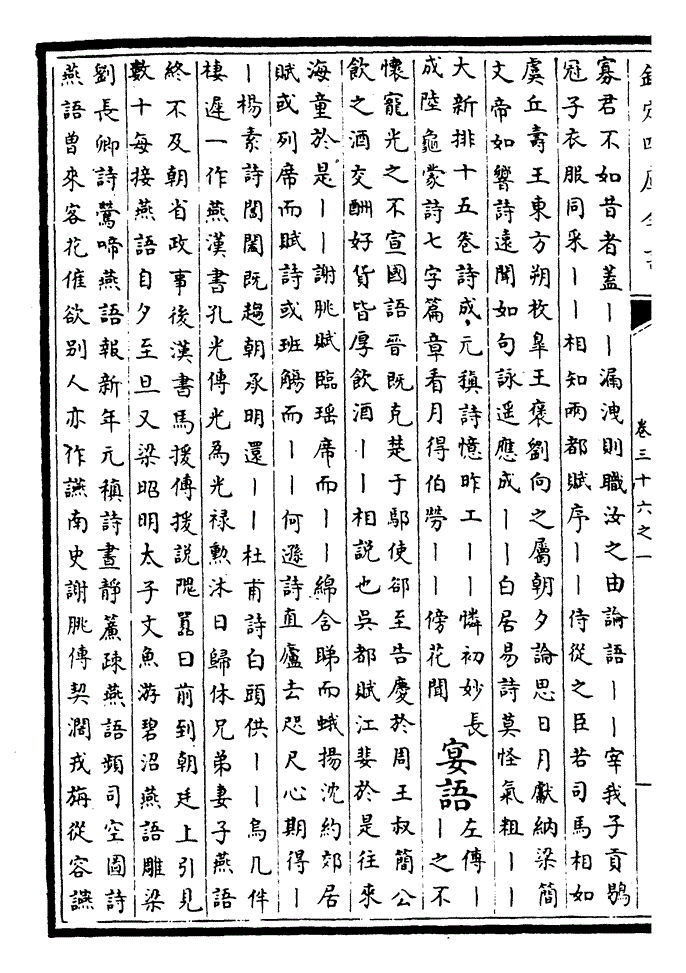 欽定四庫全書
卷三十六之一
寡君不如昔者蓋——漏洩則職汝之由論語——宰我子貢鶡
冠子衣服同采——相知兩都賦序——侍從之臣若司馬相如
虞丘壽王東方朔枚臯王褒劉向之屬朝夕論思日月獻納梁簡
文帝如響詩遠聞如句詠遥應成——白居易詩莫怪氣粗——
大新排十五卷詩成,元稹詩憶昨工——憐初妙長
成陸龜蒙詩七字篇章看月得伯勞——傍花聞
宴語
左傳—
—之不
懷寵光之不宣國語晉既克楚于鄢使郤至告慶於周王叔簡公
飲之酒交酬好貨皆厚飲酒——相説也吳都賦江斐於是往來
海童於是——謝朓賦臨瑶席而——綿含睇而蛾揚沈約郊居
賦或列席而賦詩或班觴而——何遜詩直廬去咫尺心期得—
—楊素詩閶闔既趨朝承明還——杜甫詩白頭供——烏几伴
棲遲一作燕漢書孔光傳光為光禄勲沐日歸休兄弟妻子燕語
終不及朝省政事後漢書馬援傳援説隗囂曰前到朝廷上引見
數十每接燕語自夕至旦又梁昭明太子文魚游碧沼燕語雕梁
劉長卿詩鶯啼燕語報新年元稹詩晝静簾疎燕語頻司空圖詩
燕語曽來客花催欲别人亦作讌南史謝朓傳契濶戎旃從容讌